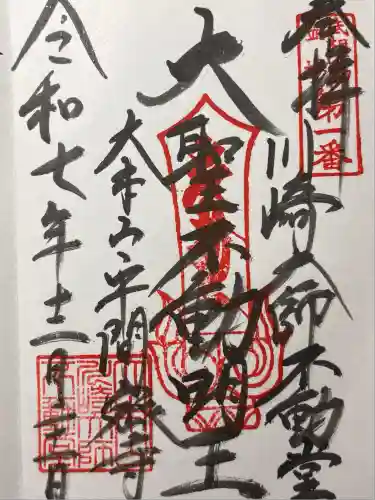 奉拝
川崎大師不動堂
大聖不動明王
大本山平間寺
令和七年十二月十二日
第一番